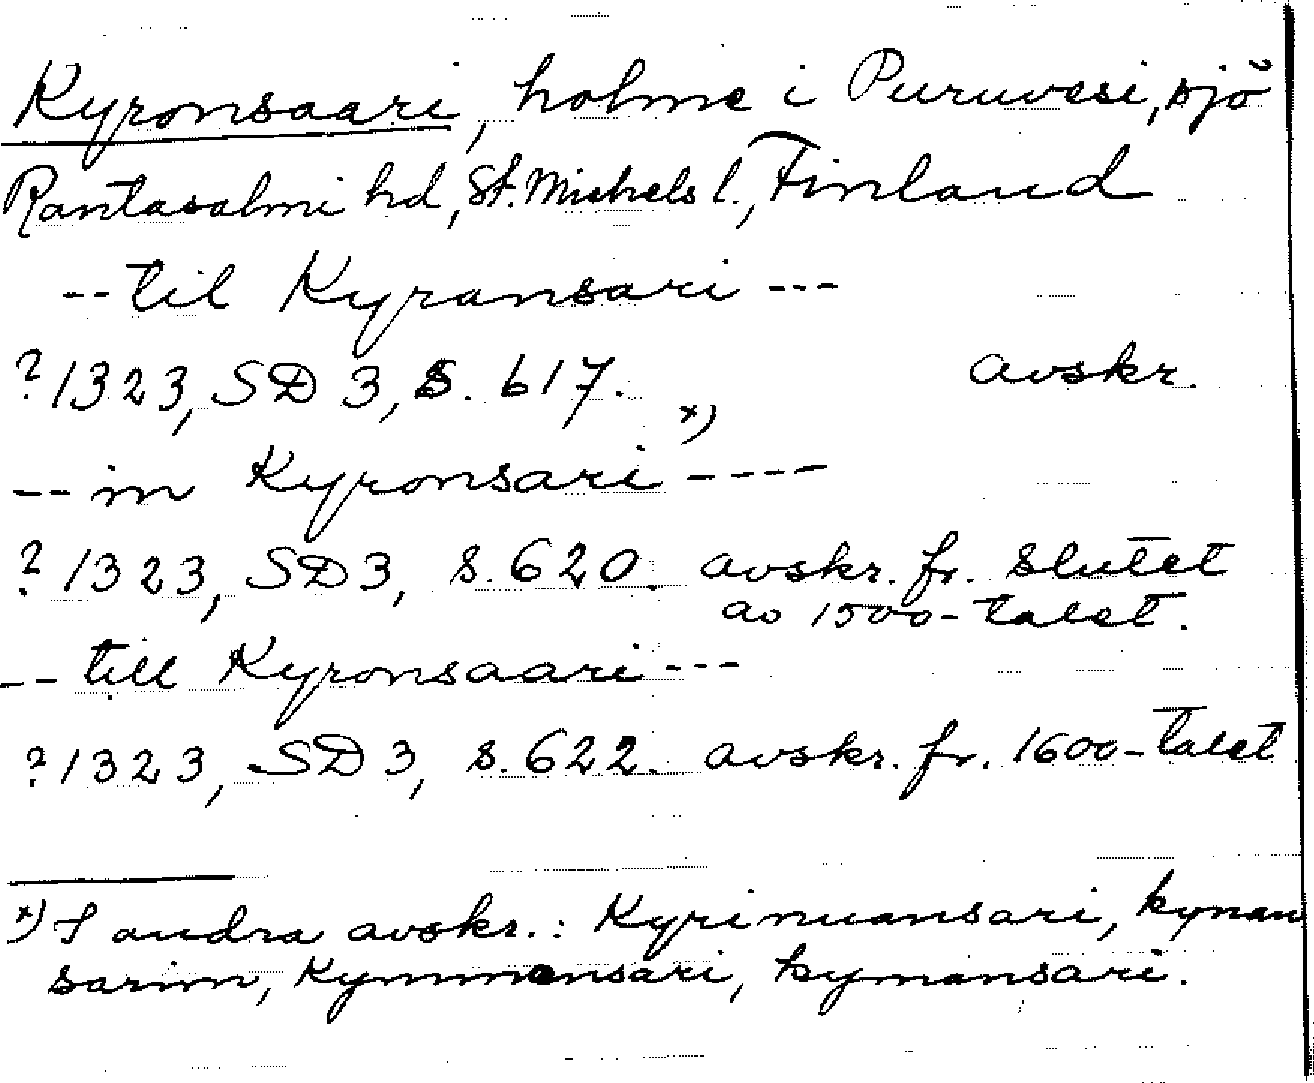 Kyronsaari, holme i Puruvesi, sjö
Rantasalmi hd, St. Michels l., Finland
-- til Kyransari ---
? 1323, SD 3, s. 617. avskr.
-- in Kyronsari x) ----
? 1323, SD 3, s. 620. avskr. fr. slutet
av 1500-talet.
-- till Kyronsaari ---
? 1323, SD 3, s. 622. avskr. fr. 1600-talet
x) I andra avskr.: Kyrinuansari, kynan
sarim, Kymmensari, kymansari.